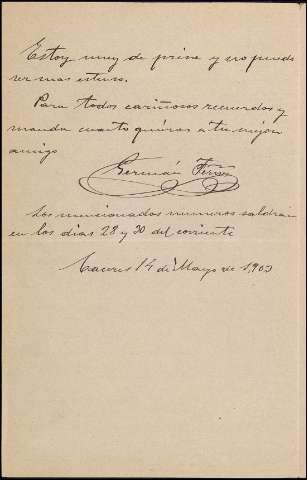 Estoy muy de prisa y no puedo
ser mas estenso.
Para todos cariñosos recuerdos y
manda cuanto quieras a tu mejor
amigo
Germán
Los mencionados numeros saldrán
en los dias 28 y 30 del corriente
Caceres 14 de Mayo de 1903